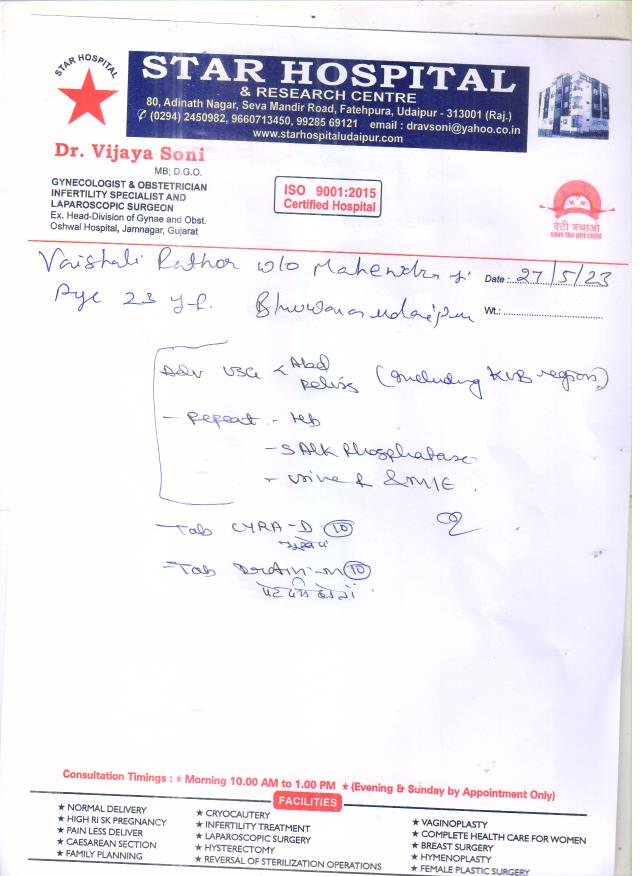 STAR HOSPITAL
STAR HOSPITAL
& RESEARCH CENTRE
80, Adinath Nagar, Seva Mandir Road, Fatehpura, Udaipur - 313001 (Raj.)
(0294) 2450982, 9660713450, 99285 69121 email : dravsoni@yahoo.co.in
www.starhospitaludaipur.com
Dr. Vijaya Soni
MB; D.G.O.
GYNECOLOGIST & OBSTETRICIAN
INFERTILITY SPECIALIST AND
LAPAROSCOPIC SURGEON
Ex. Head-Division of Gynae and Obst.
Oshwal Hospital, Jamnagar, Gujarat
ISO 9001:2015
Certified Hospital
बेटी बचाओ
save the girl child
Vaishali Rathor w/o Mahendra Date : 27/5/23
Age 23 yr. Bhuwana udaipur Wt.:
Adv USG < Abd
Pelvis (including KUB region)
- Repeat - Hb
- S Alk Phosphatase
- urine R & M/E
- Tab CYRA-D 10
- Tab 10
Consultation Timings : ★ Morning 10.00 AM to 1.00 PM ★ (Evening & Sunday by Appointment Only)
FACILITIES
★ NORMAL DELIVERY
★ HIGH RISK PREGNANCY
★ PAIN LESS DELIVER
★ CAESAREAN SECTION
★ FAMILY PLANNING
★ CRYOCAUTERY
★ INFERTILITY TREATMENT
★ LAPAROSCOPIC SURGERY
★ HYSTERECTOMY
★ REVERSAL OF STERILIZATION OPERATIONS
★ VAGINOPLASTY
★ COMPLETE HEALTH CARE FOR WOMEN
★ BREAST SURGERY
★ HYMENOPLASTY
★ FEMALE PLASTIC SURGERY